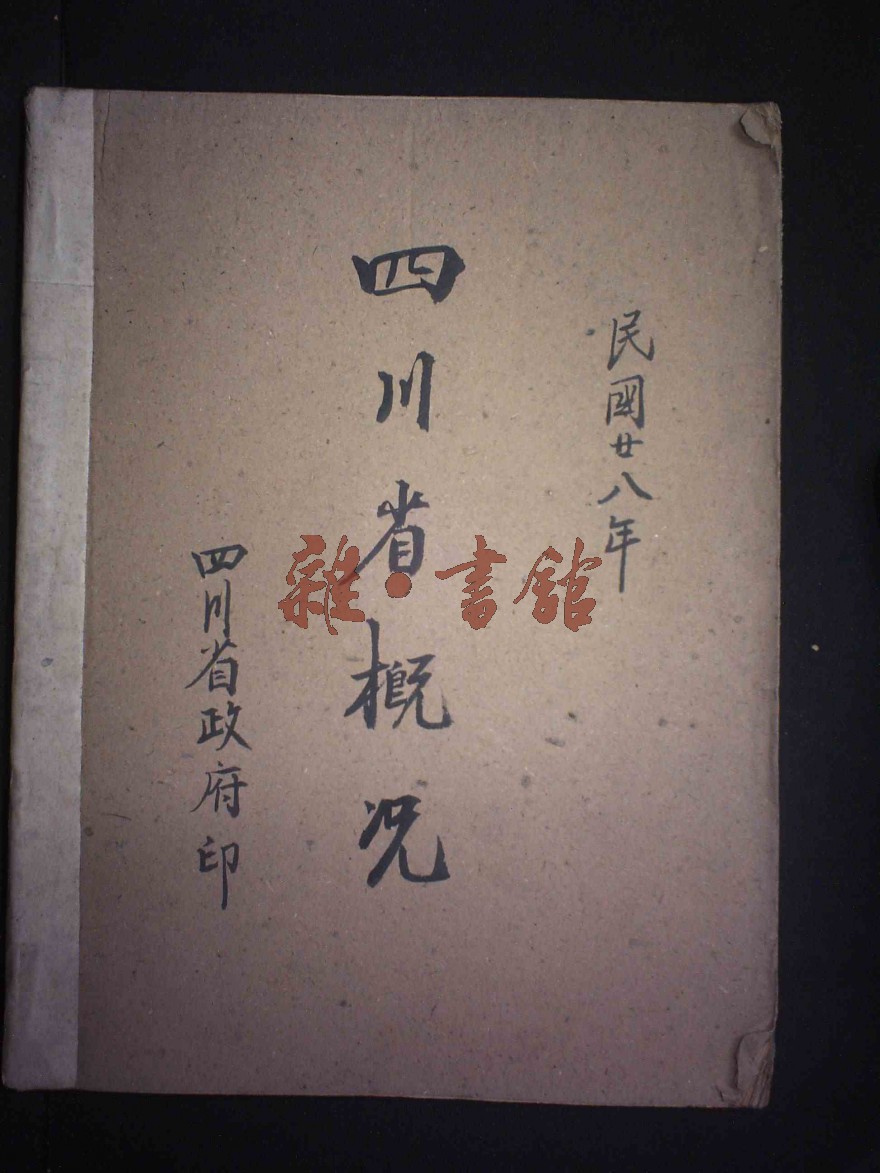 民國廿八年
四川省概况
四川省政府印
雜·書館